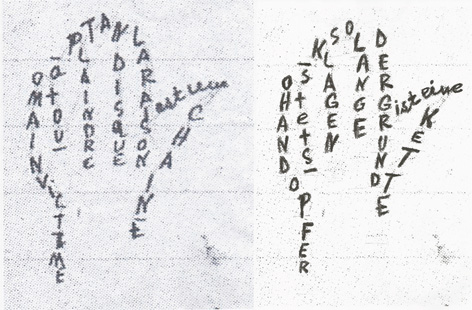 OMAINVICTIME
-atoU-
PLAINDRE
TANDISQUE
LARAISON
est une
CHAINE
OHANDOPFER
-stets-
KLAGEN
SOLANGE
DERGRUND
ist eine
KETTE